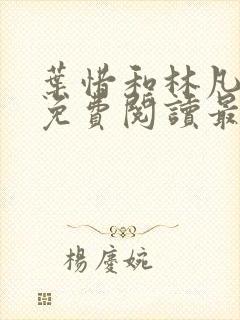 葉惜和林凡
免費閱讀最
楊慶婉